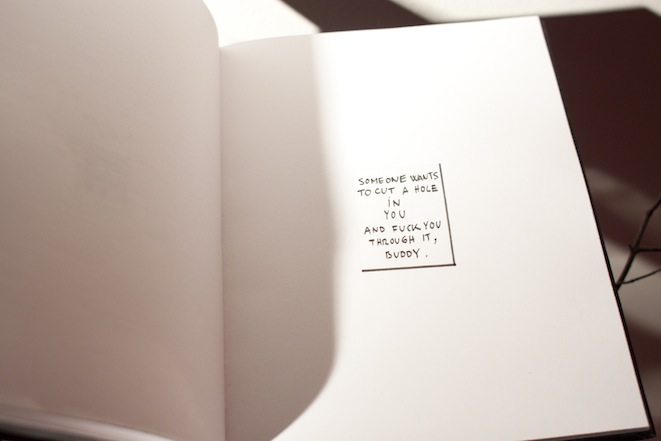 SOMEONE WANTS
TO CUT A HOLE
iN
YOU
AND FUCK YOU
THROUGH IT,
BUDDY.